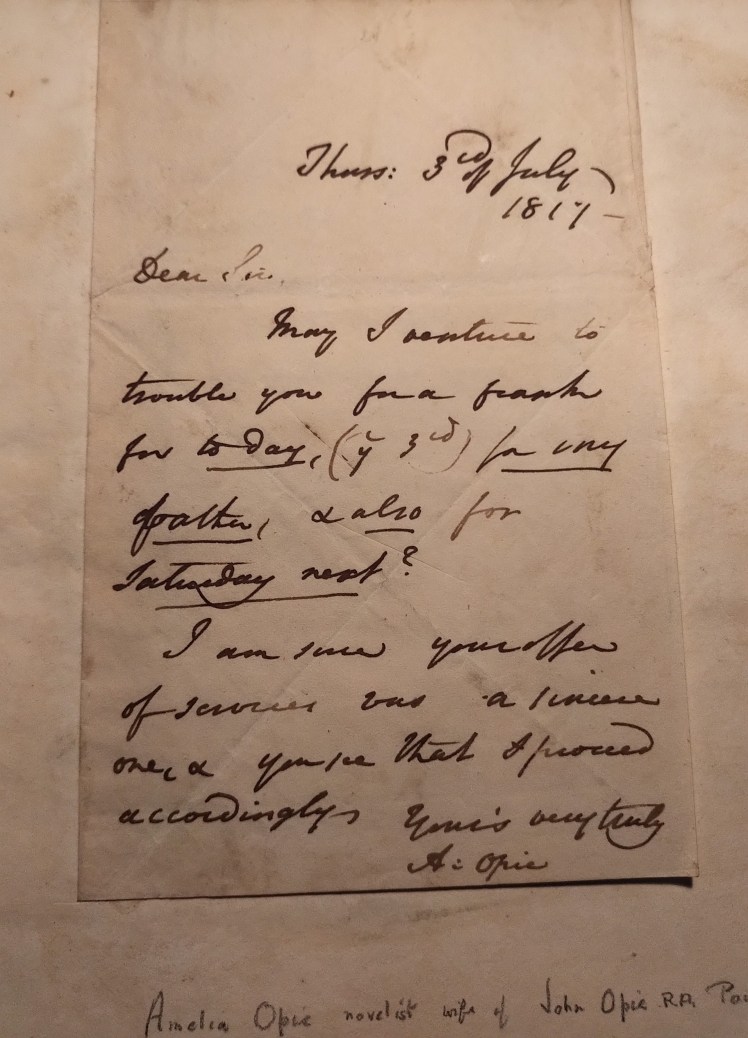 Thurs: 3rd of July
1817
Dear Sir,
May I venture to
trouble you for a frank
for to day, (ye 3rd) for my
father, & also for
Saturday next?
I am sure your offer
of services was a sincere
one, & you see that I proceed
accordingly
Yours very truly
A: Opie
Amelia Opie novelist wife of John Opie RA.